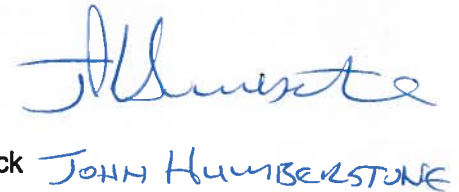 ck JOHN HUMBERSTONE